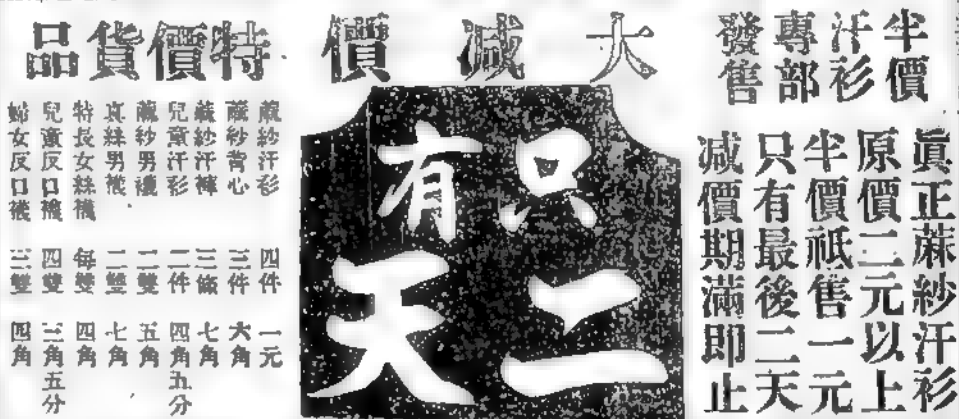 半價
汗衫
專部
發售
真正蔴紗汗衫
原價二元以上
半價祇售一元
只有最後二天
減價期滿即止
大減價
只有
二天
特價貨品
蔴紗汗衫 四件 一元
蔴紗背心 三件 六角
蔴紗汗褲 三條 七角
兒童汗衫 二件 四角五分
蔴紗男襪 二雙 五角
真絲男襪 二雙 七角
特長女絲襪 每雙 四角
兒童反口襪 四雙 三角五分
婦女反口襪 三雙 四角